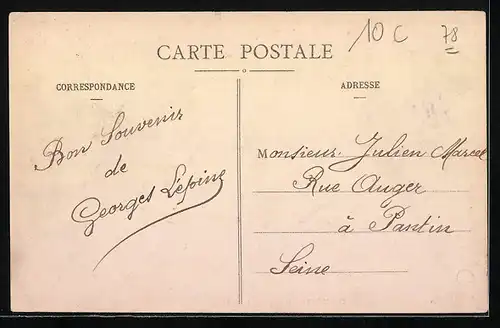 10 C
78
CARTE POSTALE
CORRESPONDANCE
ADRESSE
Bon Souvenir
de
Georges Lépine
Monsieur Julien Marcel
Rue Auger
à Pantin
Seine